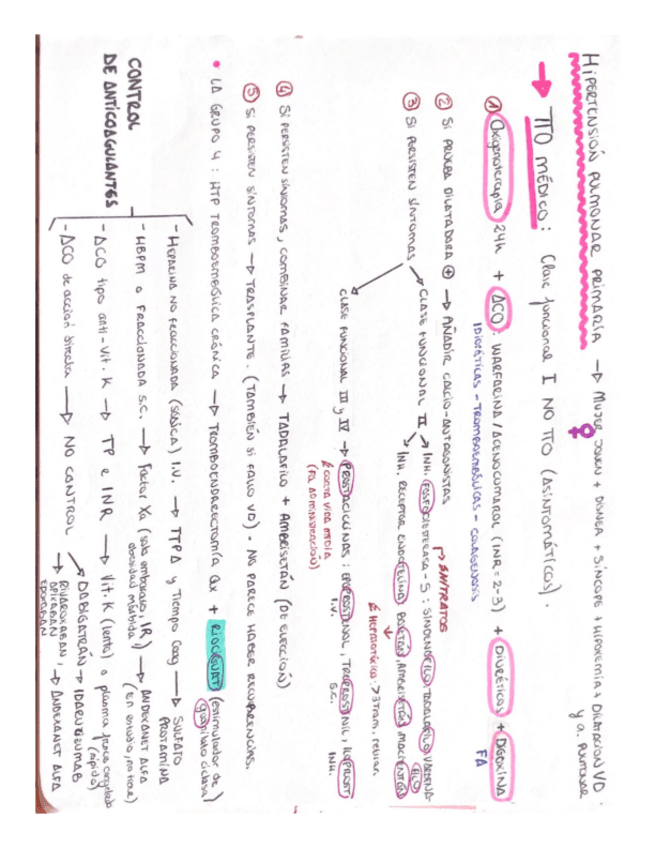 HIPERTENSIÓN PULMONAR PRIMARIA → MUJER JOVEN + DISNEA + SÍNCOPE + HIPOXEMIA y DILATACIÓN VD
♀ y a. PULMONAR
→ TTO MÉDICO: Clase funcional I NO TTO (ASINTOMÁTICOS).
① Oxigenoterapia 24h + ACO: WARFARINA / ACENOCUMAROL (INR = 2-3) + DIURÉTICOS + DIGOXINA
IDIOPÁTICAS - TROMBOEMBÓLICAS - COLAGENOSIS FA
② SI PRUEBA DILATADORA ⊕ → AÑADIR CALCIO-ANTAGONISTAS
③ SI PERSISTEN SÍNTOMAS
CLASE FUNCIONAL II → INH. FOSFODIESTERASA-5: SINDENAFILO, TADALAFILO, VARDENAFILO
INH. RECEPTOR ENDOTELINA: BOSETÁN, AMBRISETÁN, MACITENTÁN
HEPATOTÓXICO: >3 Tran. revisar.
CLASE FUNCIONAL III y IV → PROSTACICLINAS: EPOPROSTENOL, TREPROSTINIL, ILOPROST
CORTA VIDA MEDIA I.V. S.C. INH.
(FA ADMINISTRACIÓN)
④ SI PERSISTEN SÍNTOMAS, COMBINAR FAMILIAS → TADALAFILO + AMBRISETÁN (DE ELECCIÓN)
⑤ SI PERSISTEN SÍNTOMAS → TRASPLANTE. (TAMBIÉN SI FALLO VD). NO PARECE HABER RECURRENCIAS.
• LA GRUPO 4: HTP TROMBOEMBÓLICA CRÓNICA → TROMBOENDARECTOMÍA Qx + RIOCIGUAT (estimulador de
guanilato ciclasa)
CONTROL
DE ANTICOAGULANTES
- HEPARINA NO FRACCIONADA (SÓDICA) I.V. → TTPA y Tiempo Coag → SULFATO
PROTAMINA
- HBPM o FRACCIONADA S.C. → Factor Xa (solo embarazo, IR, → ANDEXANET ALFA
obesidad mórbida) (En estudio, no tiene)
- ACO tipo anti-Vit. K → TP e INR → Vit. K (lento) o plasma fresco congelado
(rápido)
- ACO de acción directa → NO CONTROL → DABIGATRÁN → IDARUCIZUMAB
RIVAROXABAN, → ANDEXANET ALFA
APIXABAN
EDOXABAN